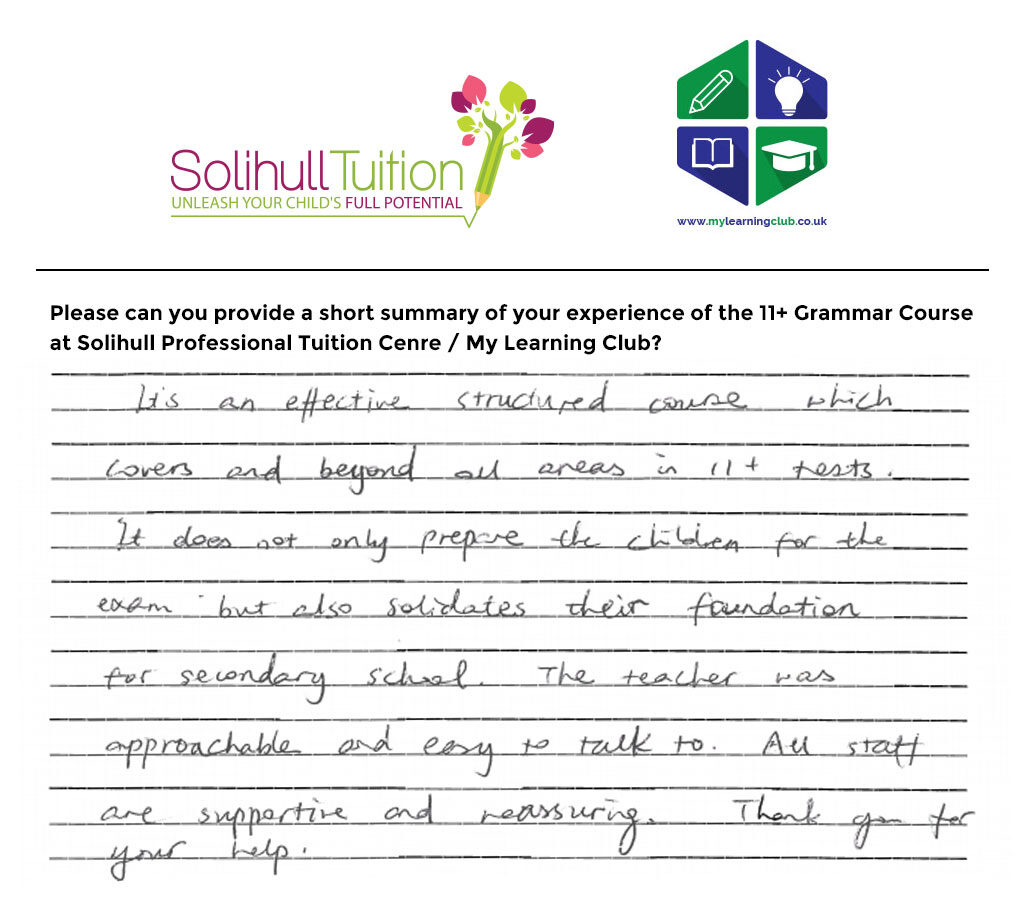 Solihull Tuition
UNLEASH YOUR CHILD'S FULL POTENTIAL
www.mylearningclub.co.uk
Please can you provide a short summary of your experience of the 11+ Grammar Course
at Solihull Professional Tuition Cenre / My Learning Club?
It's an effective structured course which
covers and beyond all areas in 11+ tests.
It does not only prepare the children for the
exam but also solidates their foundation
for secondary school. The teacher was
approachable and easy to talk to. All staff
are supportive and reassuring. Thank you for
your help.